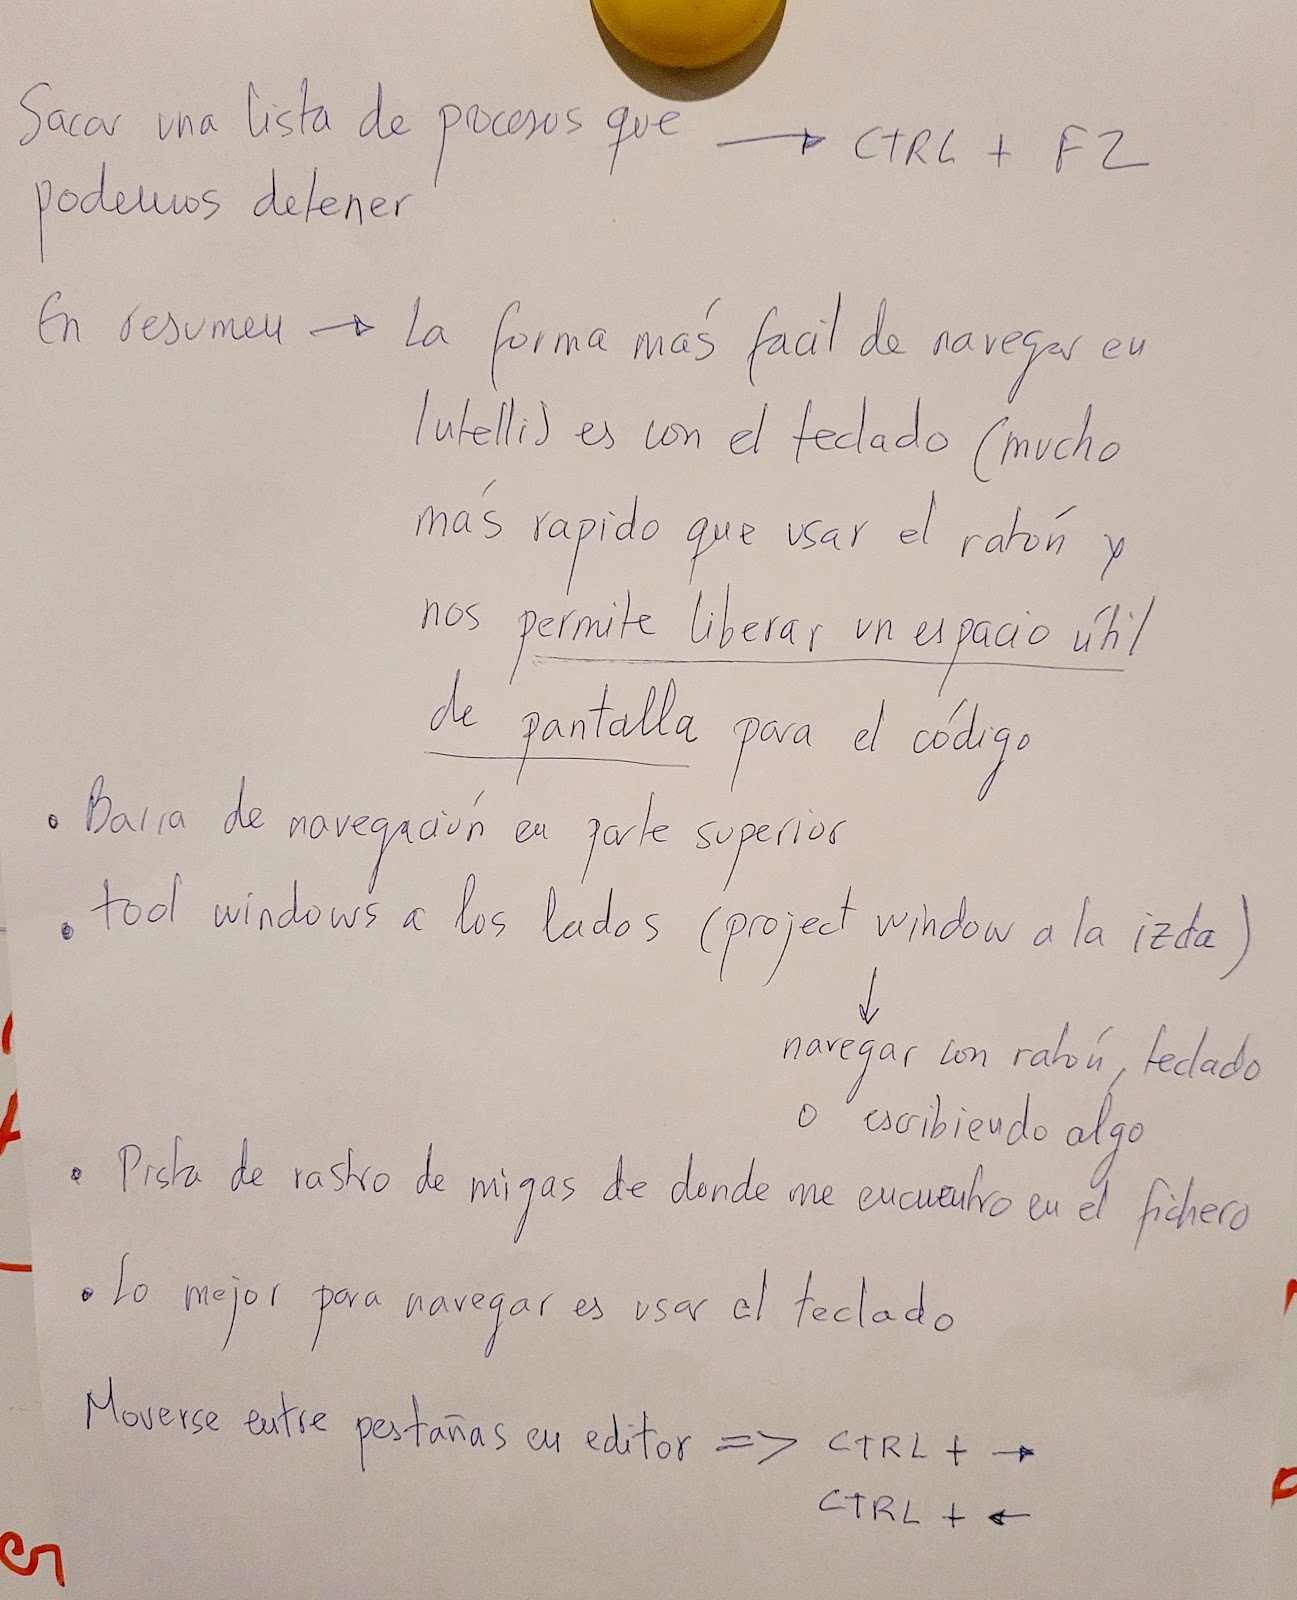 Sacar una lista de procesos que → CTRL + F2
podemos detener
En resumen → La forma más facil de navegar en
IntelliJ es con el teclado (mucho
más rapido que usar el ratón y
nos permite liberar un espacio útil
de pantalla para el código
• Barra de navegación en parte superior
• tool windows a los lados (project window a la izda)
↓
navegar con ratón, teclado
o escribiendo algo
• Pista de rastro de migas de donde me encuentro en el fichero
• Lo mejor para navegar es usar el teclado
Moverse entre pestañas en editor => CTRL + →
CTRL + ←